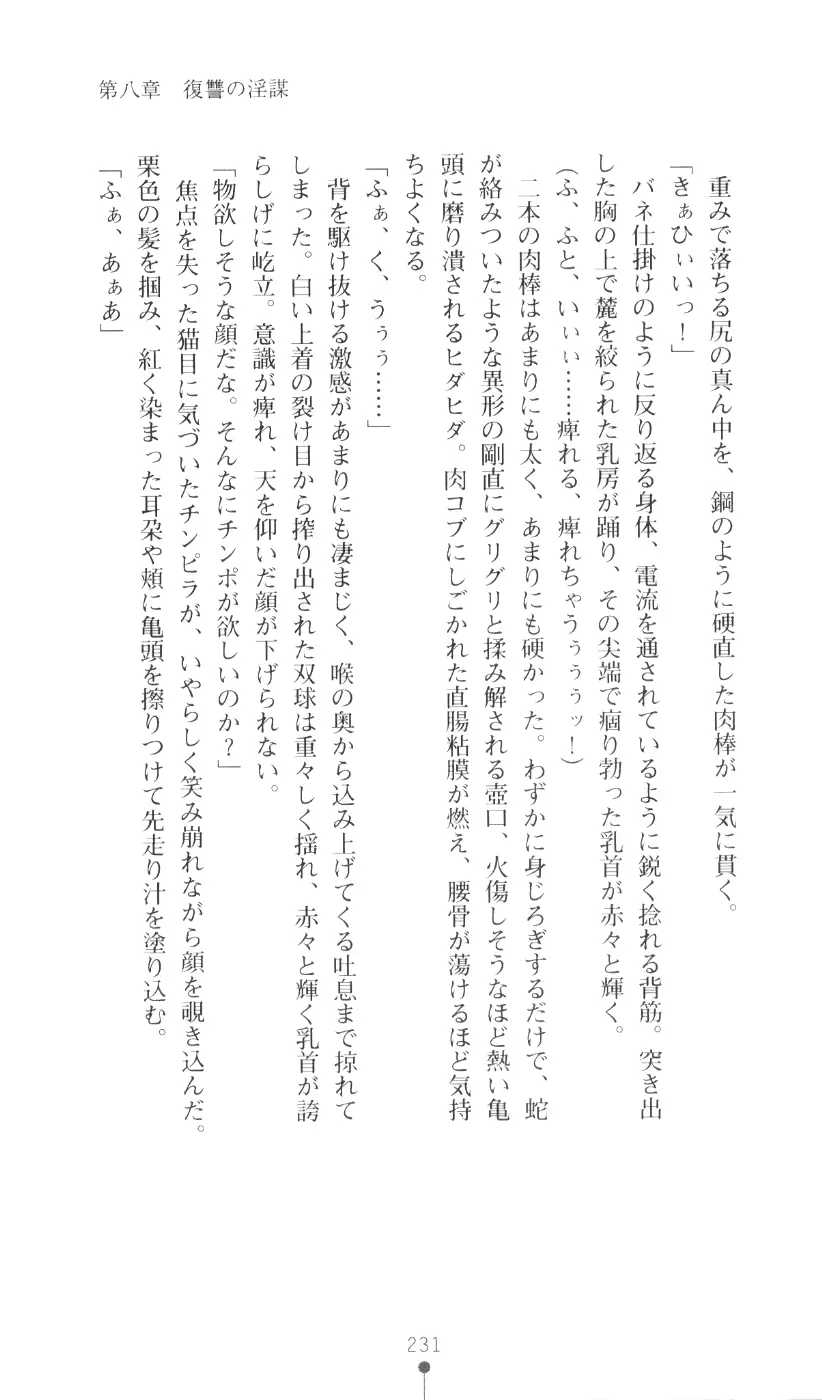 第八章　復讐の淫謀
　重みで落ちる尻の真ん中を、鋼のように硬直した肉棒が一気に貫く。
「きぁひぃいっ！」
　バネ仕掛けのように反り返る身体、電流を通されているように鋭く捻れる背筋。突き出
した胸の上で麓を絞られた乳房が踊り、その尖端で痼り勃った乳首が赤々と輝く。
（ふ、ふと、いぃぃ……痺れる、痺れちゃうぅぅぅッ！）
　二本の肉棒はあまりにも太く、あまりにも硬かった。わずかに身じろぎするだけで、蛇
が絡みついたような異形の剛直にグリグリと揉み解される壺口、火傷しそうなほど熱い亀
頭に磨り潰されるヒダヒダ。肉コブにしごかれた直腸粘膜が燃え、腰骨が蕩けるほど気持
ちよくなる。
「ふぁ、く、うぅぅ……」
　背を駆け抜ける激感があまりにも凄まじく、喉の奥から込み上げてくる吐息まで掠れて
しまった。白い上着の裂け目から搾り出された双球は重々しく揺れ、赤々と輝く乳首が誇
らしげに屹立。意識が痺れ、天を仰いだ顔が下げられない。
「物欲しそうな顔だな。そんなにチンポが欲しいのか？」
　焦点を失った猫目に気づいたチンピラが、いやらしく笑み崩れながら顔を覗き込んだ。
栗色の髪を掴み、紅く染まった耳朶や頬に亀頭を擦りつけて先走り汁を塗り込む。
「ふぁ、あぁあ」
231